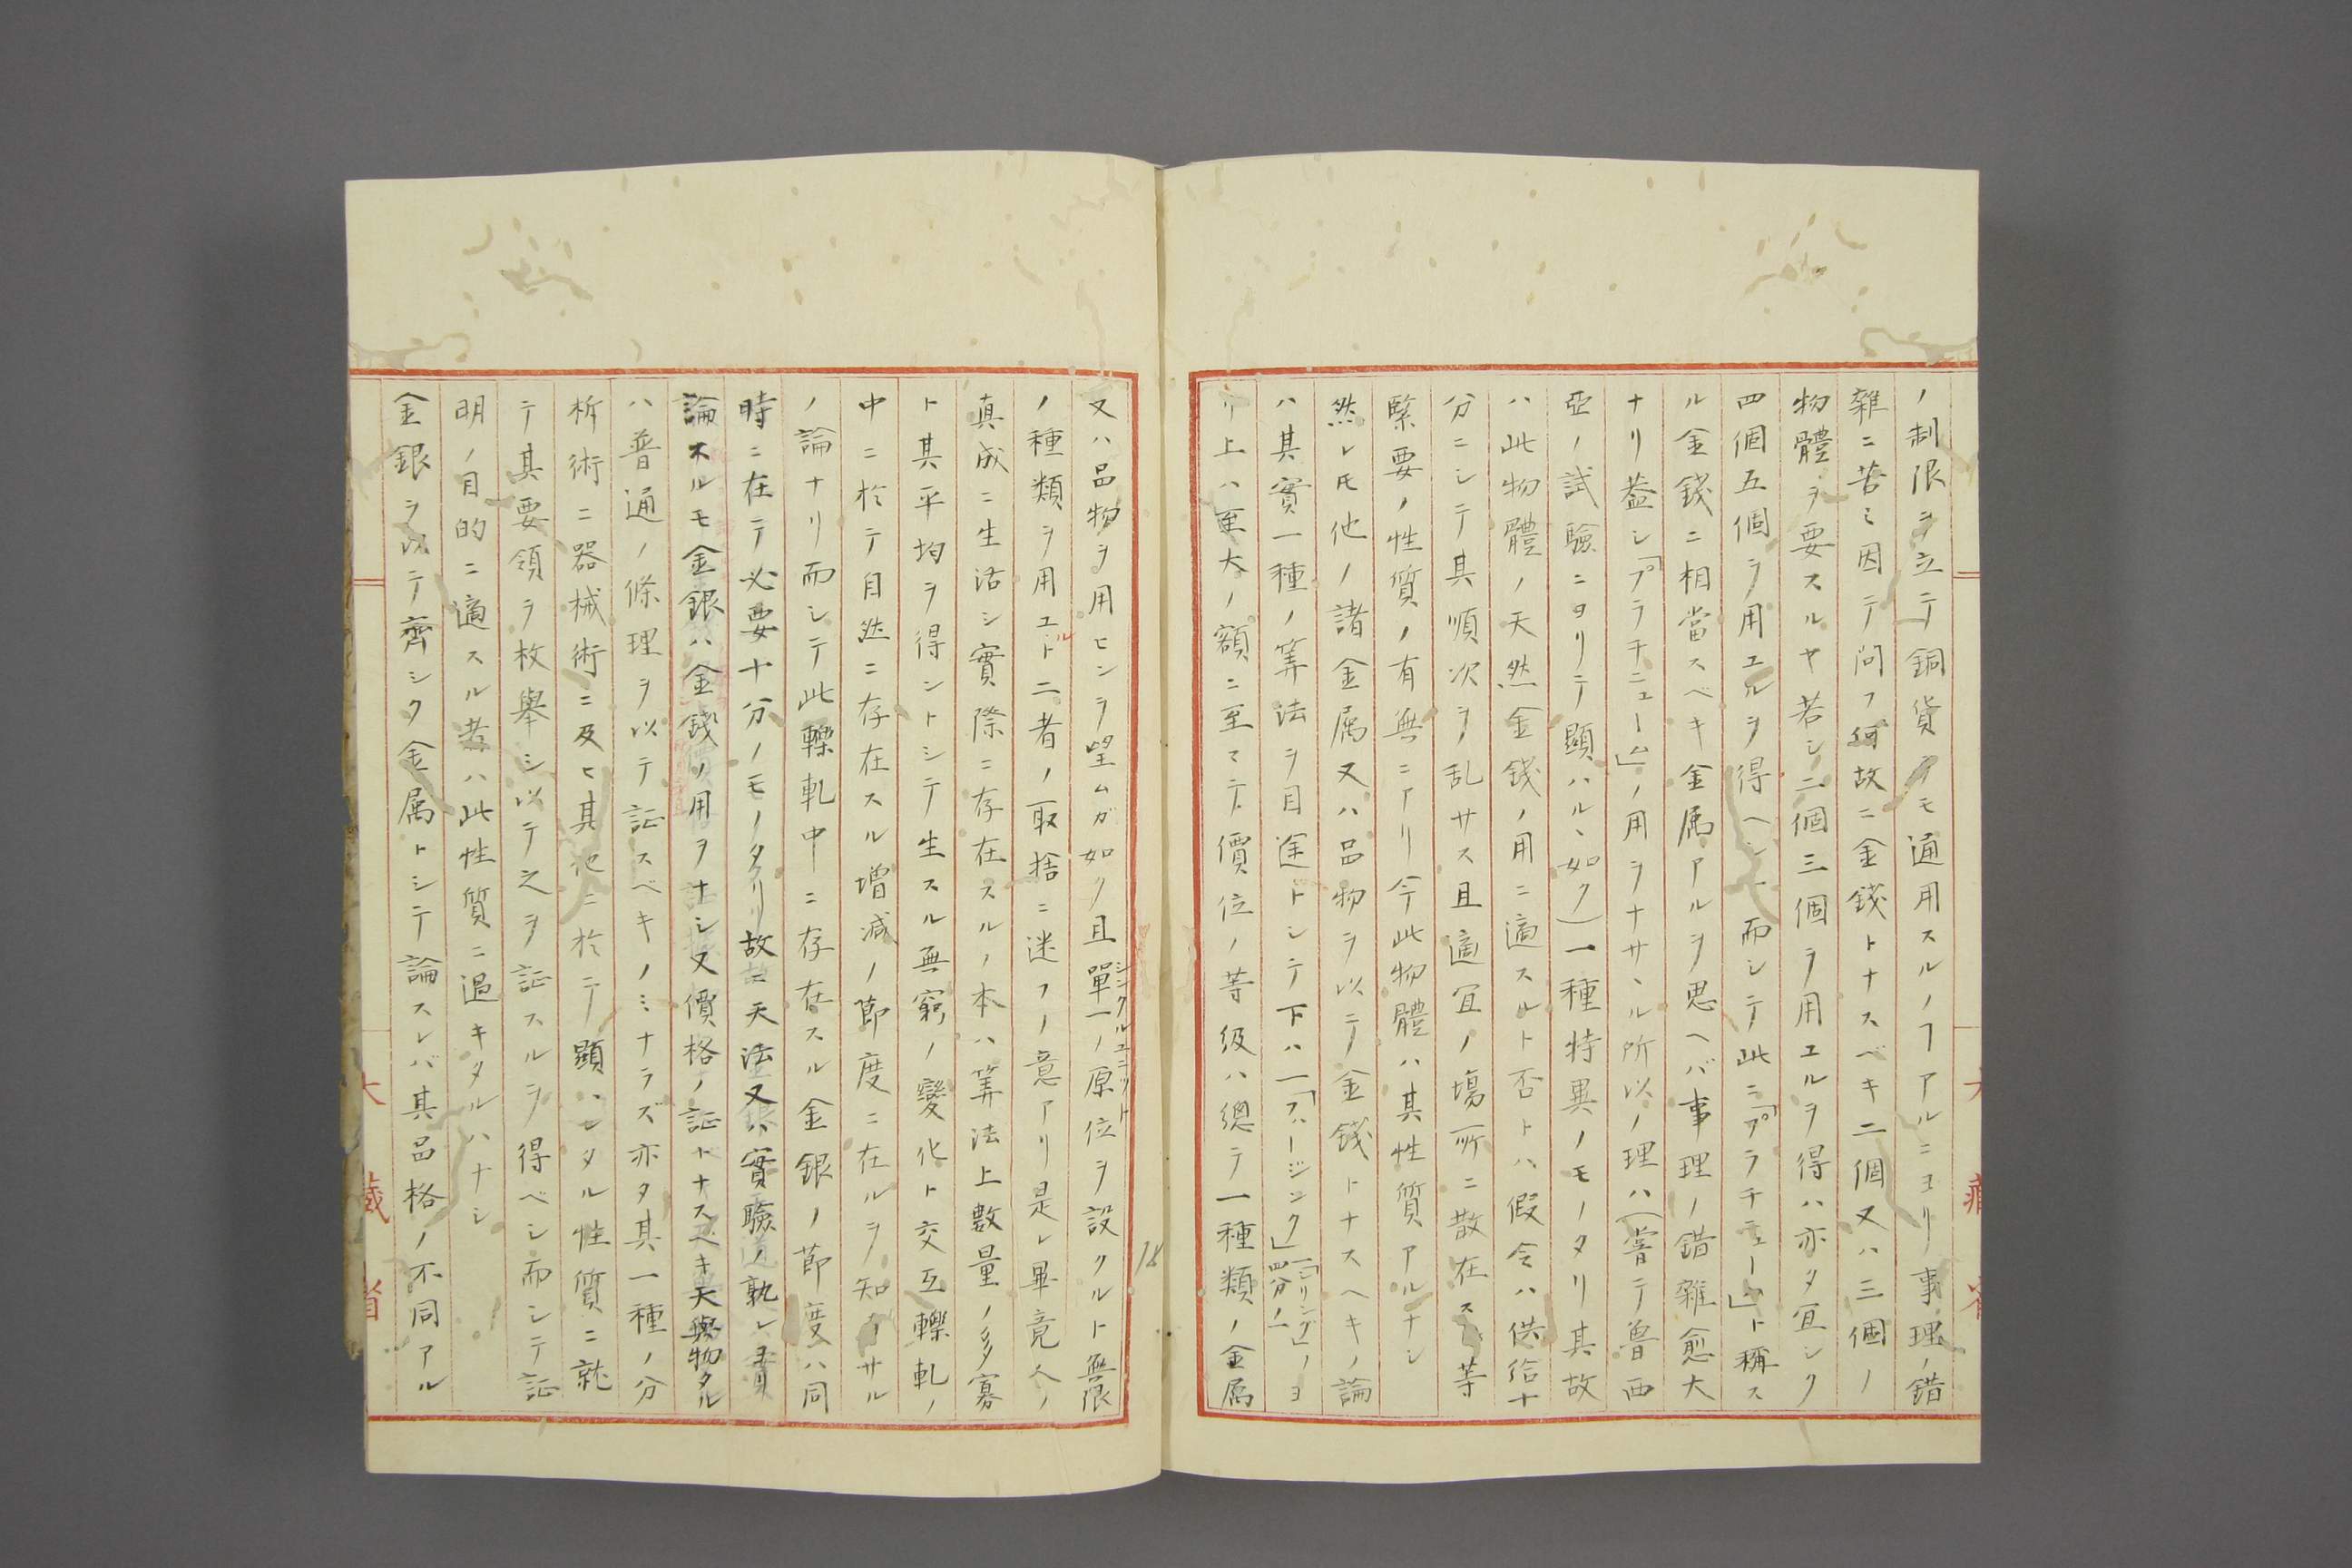 ノ制限ヲ立テ銅貨ヲモ通用スルノヿアルニヨリ事理ノ錯
雜ニ苦ミ因テ問フ何故ニ金錢トナスベキ二個又ハ三個ノ
物體ヲ要スルヤ若シ二個三個ヲ用エルヲ得ハ亦タ宜シク
四個五個ヲ用エルヲ得ヘシ而シテ此ニ「プラチニューム」ト稱ス
ル金錢ニ相當スベキ金属アルヲ思ヘバ事理ノ錯雜愈大
ナリ葢シ「プラチニューム」ノ用ヲナサヽル所以ノ理ハ(嘗テ魯西
亞ノ試驗ニヨリテ顯ハルヽ如ク)一種特異ノモノタリ其故
ハ此物體ノ天然金錢ノ用ニ適スルト否トハ假令ハ供給十
分ニシテ其順次ヲ乱サス且適宜ノ塲所ニ散在スル等
緊要ノ性質ノ有無ニアリ今此物體ハ其性質アルナシ
然レ𪜈他ノ諸金属又ハ品物ヲ以テ金錢トナスヘキノ論
ハ其實一種ノ筭法ヲ目途トシテ下ハ一「フハージンク」「シリング」ノ四分ノ一ヨ
リ上ハ至大ノ額ニ至マテ價位ノ等級ハ總テ一種類ノ金属
又ハ品物ヲ用ヒンヿヲ望ムガ如ク且單一ノ原位ヲ設クルト無限
シンクルユニット
ノ種類ヲ用エルト二者ノ取捨ニ迷フノ意アリ是レ畢竟人ノ
真成ニ生活シ實際ニ存在スルノ本ハ筭法上數量ノ多寡
ト其平均ヲ得ントシテ生スル無窮ノ變化ト交互轢軋ノ
中ニ於テ自然ニ存在スル増减ノ節度ニ在ルヲ知ラサル
ノ論ナリ而シテ此轢軋中ニ存在スル金銀ノ節度ハ同
時ニ在テ必要十分ノモノタリ故ニ天法又ハ實驗ノ孰レヨリ
論スルモ金銀ハ金錢ノ用ヲナシ又價格ノ証トナスベキ天與物タル
ハ普通ノ條理ヲ以テ証スベキノミナラズ亦タ其一種ノ分
析術ニ器械術ニ及ヒ其他ニ於テ顯ハセタル性質ニ就
テ其要領ヲ枚擧シ以テ之ヲ証スルヲ得ベシ而シテ証
明ノ目的ニ適スル者ハ此性質ニ過キタルハナシ
金銀ヲ以テ齊シク金属トシテ論スレバ其品格ノ不同アル
大藏省
18